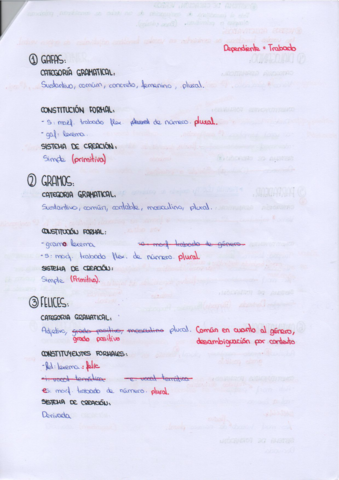 Dependiente = Trabado
① GAFAS:
CATEGORÍA GRAMATICAL:
Sustantivo, común, concreto, femenino, plural.
CONSTITUCIÓN FORMAL:
-s: morf. trabado flex. de número. plural.
-gaf: lexema.
SISTEMA DE CREACIÓN:
Simple (primitiva)
② GRAMOS:
CATEGORIA GRAMATICAL.
Sustantivo, común, contable, masculino, plural.
CONSTITUCIÓN FORMAL:
-gramo lexema. -o morf trabado de género.
-s: morf. trabado flex. de número. plural.
SISTEMA DE CREACIÓN:
Simple. (Primitiva).
③ FELICES:
CATEGORIA GRAMATICAL.
Adjetivo, grado positivo, masculino plural. Común en cuanto al género,
grado positivo desambiguación por contexto
CONSTITUYENTES FORMALES:
lexema:
morf. trabado de número. plural
SISTEMA DE CREACIÓN:
Derivada.